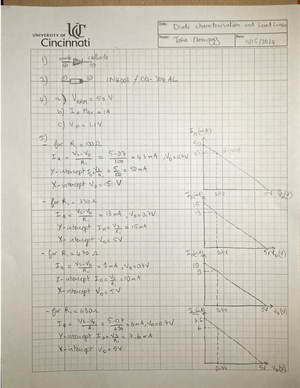 UNIVERSITY OF
Cincinnati
Title: Diode characterization and Load Lines
Name: John
Date: 5/15/2024
1) anode cathode
(+) (-)
2) 1N4001 / DO-204 AL
4) a) VRRM = 50 V
b) IF = 1A
c) VF = 1.1V
5)
- for R1 = 100Ω
= (5-0.7)/100 = 43mA, VD=0.7V
Y-intercept ID = VS/R1 = 5/100 = 50mA
X-intercept VD = 5V
- for R1 = 330Ω
= 13mA, VD=0.7V
Y-intercept ID = VS/R1 = 15mA
X-intercept VD = 5V
= 9mA, VD=0.7V
Y-intercept ID = VS/R1 = 10mA
X-intercept VD = 5V
- for R1 =
= 6mA, VD=0.7V
Y-intercept ID = VS/R1 = 7.6mA
X-intercept VD = 5V
ID(mA)
50
0.7V 5V VD(V)
ID(mA)
15
13
0.7V 5V VD(V)
ID(mA)
10
9
0.7V 5V VD(V)
ID(mA)
7.6
6
0.7V 5V VD(V)